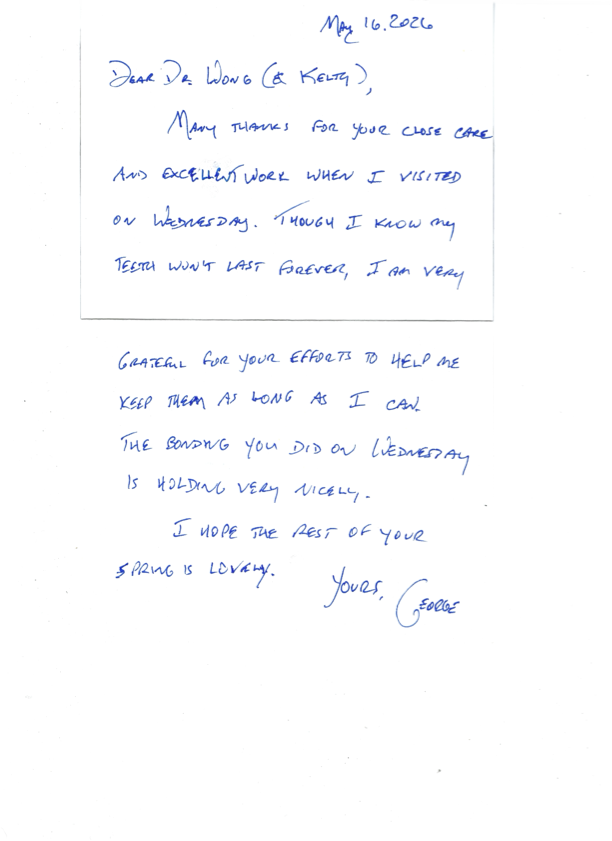 May 16. 2026
Dear Dr. Wong (& Kelty),
Many thanks for your close care
and excellent work when I visited
on Wednesday. Though I know my
teeth won't last forever, I am very
grateful for your efforts to help me
keep them as long as I can.
The bonding you did on Wednesday
is holding very nicely.
I hope the rest of your
spring is lovely.
Yours,
George